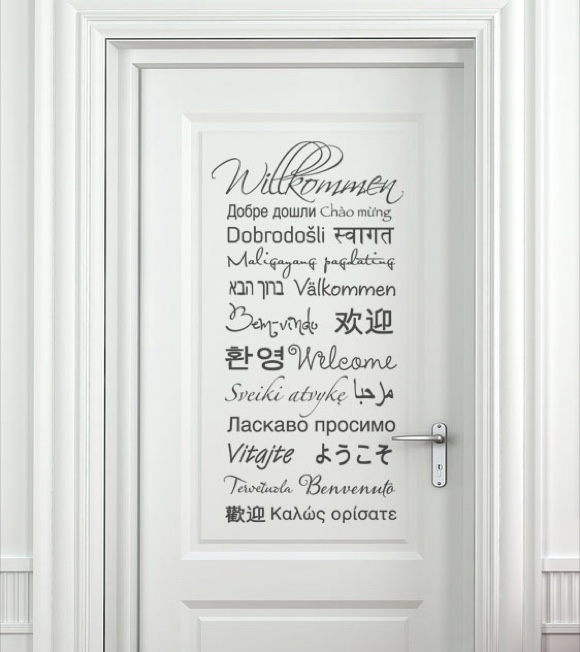 Willkommen
Добре дошли Chào mừng
Dobrodošli स्वागत
Maligayang pagdating
ברוך הבא Välkommen
Bem-vindo 欢迎
환영 Welcome
Sveiki atvykę مرحبا
Ласкаво просимо
Vitajte ようこそ
Tervetuloa Benvenuto
歡迎 Καλώς ορίσατε